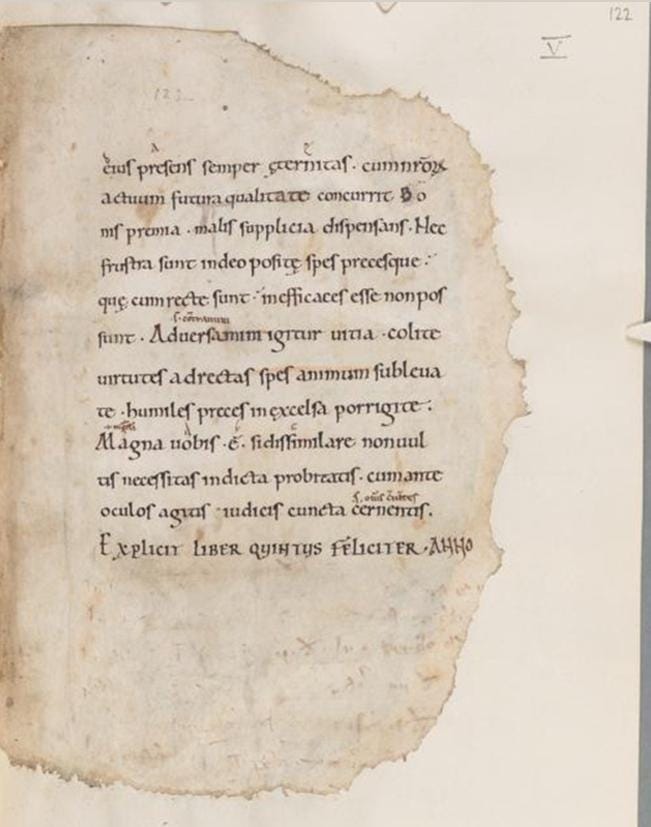 122
V
123
eius presens semper ęternitas . cum nr̄oꝝ
actuum futura qualitate concurrit Bo
nis premia . malis supplicia dispensans . Nec
frustra sunt in deo positę spes precesque .
quę cum recte sunt . inefficaces esse non pos
sunt . Aduersamini igitur uitia . colite
uirtutes ad rectas spes animum subleua
te . humiles preces in excelsa porrigite .
Magna uobis . ē . si dissimilare non uul
tis necessitas indicta probitatis . cum ante
oculos agitis iudicis cuncta cernentis .
Explicit LIBER QUINTUS FELICITER . ANNO